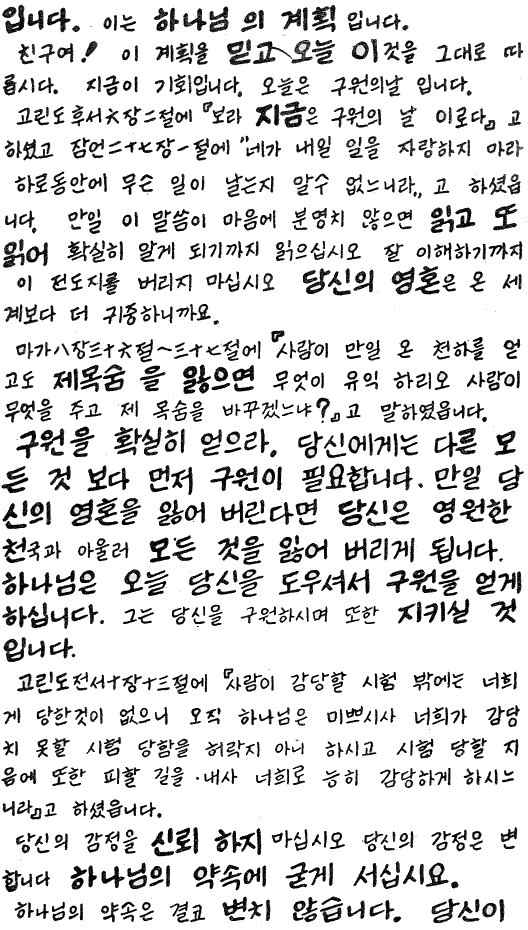 입니다. 이는 하나님 의 계획 입니다.
친구여! 이 계획을 믿고 오늘 이것을 그대로 따
릅시다. 지금이 기회입니다. 오늘은 구원의날 입니다.
고린도후서六장二절에 『보라 지금은 구원의 날 이로다』고
하였고 잠언二十七장一절에 "네가 내일 일을 자랑하지 마라
하로동안에 무슨 일이 날는지 알수 없느니라„ 고 하셨읍
니다. 만일 이 말씀이 마음에 분명치 않으면 읽고 또
읽어 확실히 알게 되기까지 읽으십시오 잘 이해하기까지
이 전도지를 버리지 마십시오 당신의 영혼은 온 세
계보다 더 귀중하니까요.
마가八장三十六절~三十七절에 『사람이 만일 온 천하를 얻
고도 제목숨 을 잃으면 무엇이 유익 하리오 사람이
무엇을 주고 제 목숨을 바꾸겠느냐?』고 말하였읍니다.
구원을 확실히 얻으라. 당신에게는 다른 모
든 것 보다 먼저 구원이 필요합니다. 만일 당
신의 영혼을 잃어 버린다면 당신은 영원한
천국과 아울러 모든 것을 잃어 버리게 됩니다.
하나님은 오늘 당신을 도우셔서 구원을 얻게
하십니다. 그는 당신을 구원하시며 또한 지키실 것
입니다.
고린도전서十장十三절에 『사람이 감당할 시험 밖에는 너희
게 당한것이 없으니 오직 하나님은 미쁘시사 너희가 감당
치 못할 시험 당함을 허락지 아니 하시고 시험 당할 지
음에 또한 피할 길을 내사 너희로 능히 감당하게 하시느
니라』고 하셨읍니다.
당신의 감정을 신뢰 하지 마십시오 당신의 감정은 변
합니다 하나님의 약속에 굳게 서십시요.
하나님의 약속은 결코 변치 않습니다. 당신이